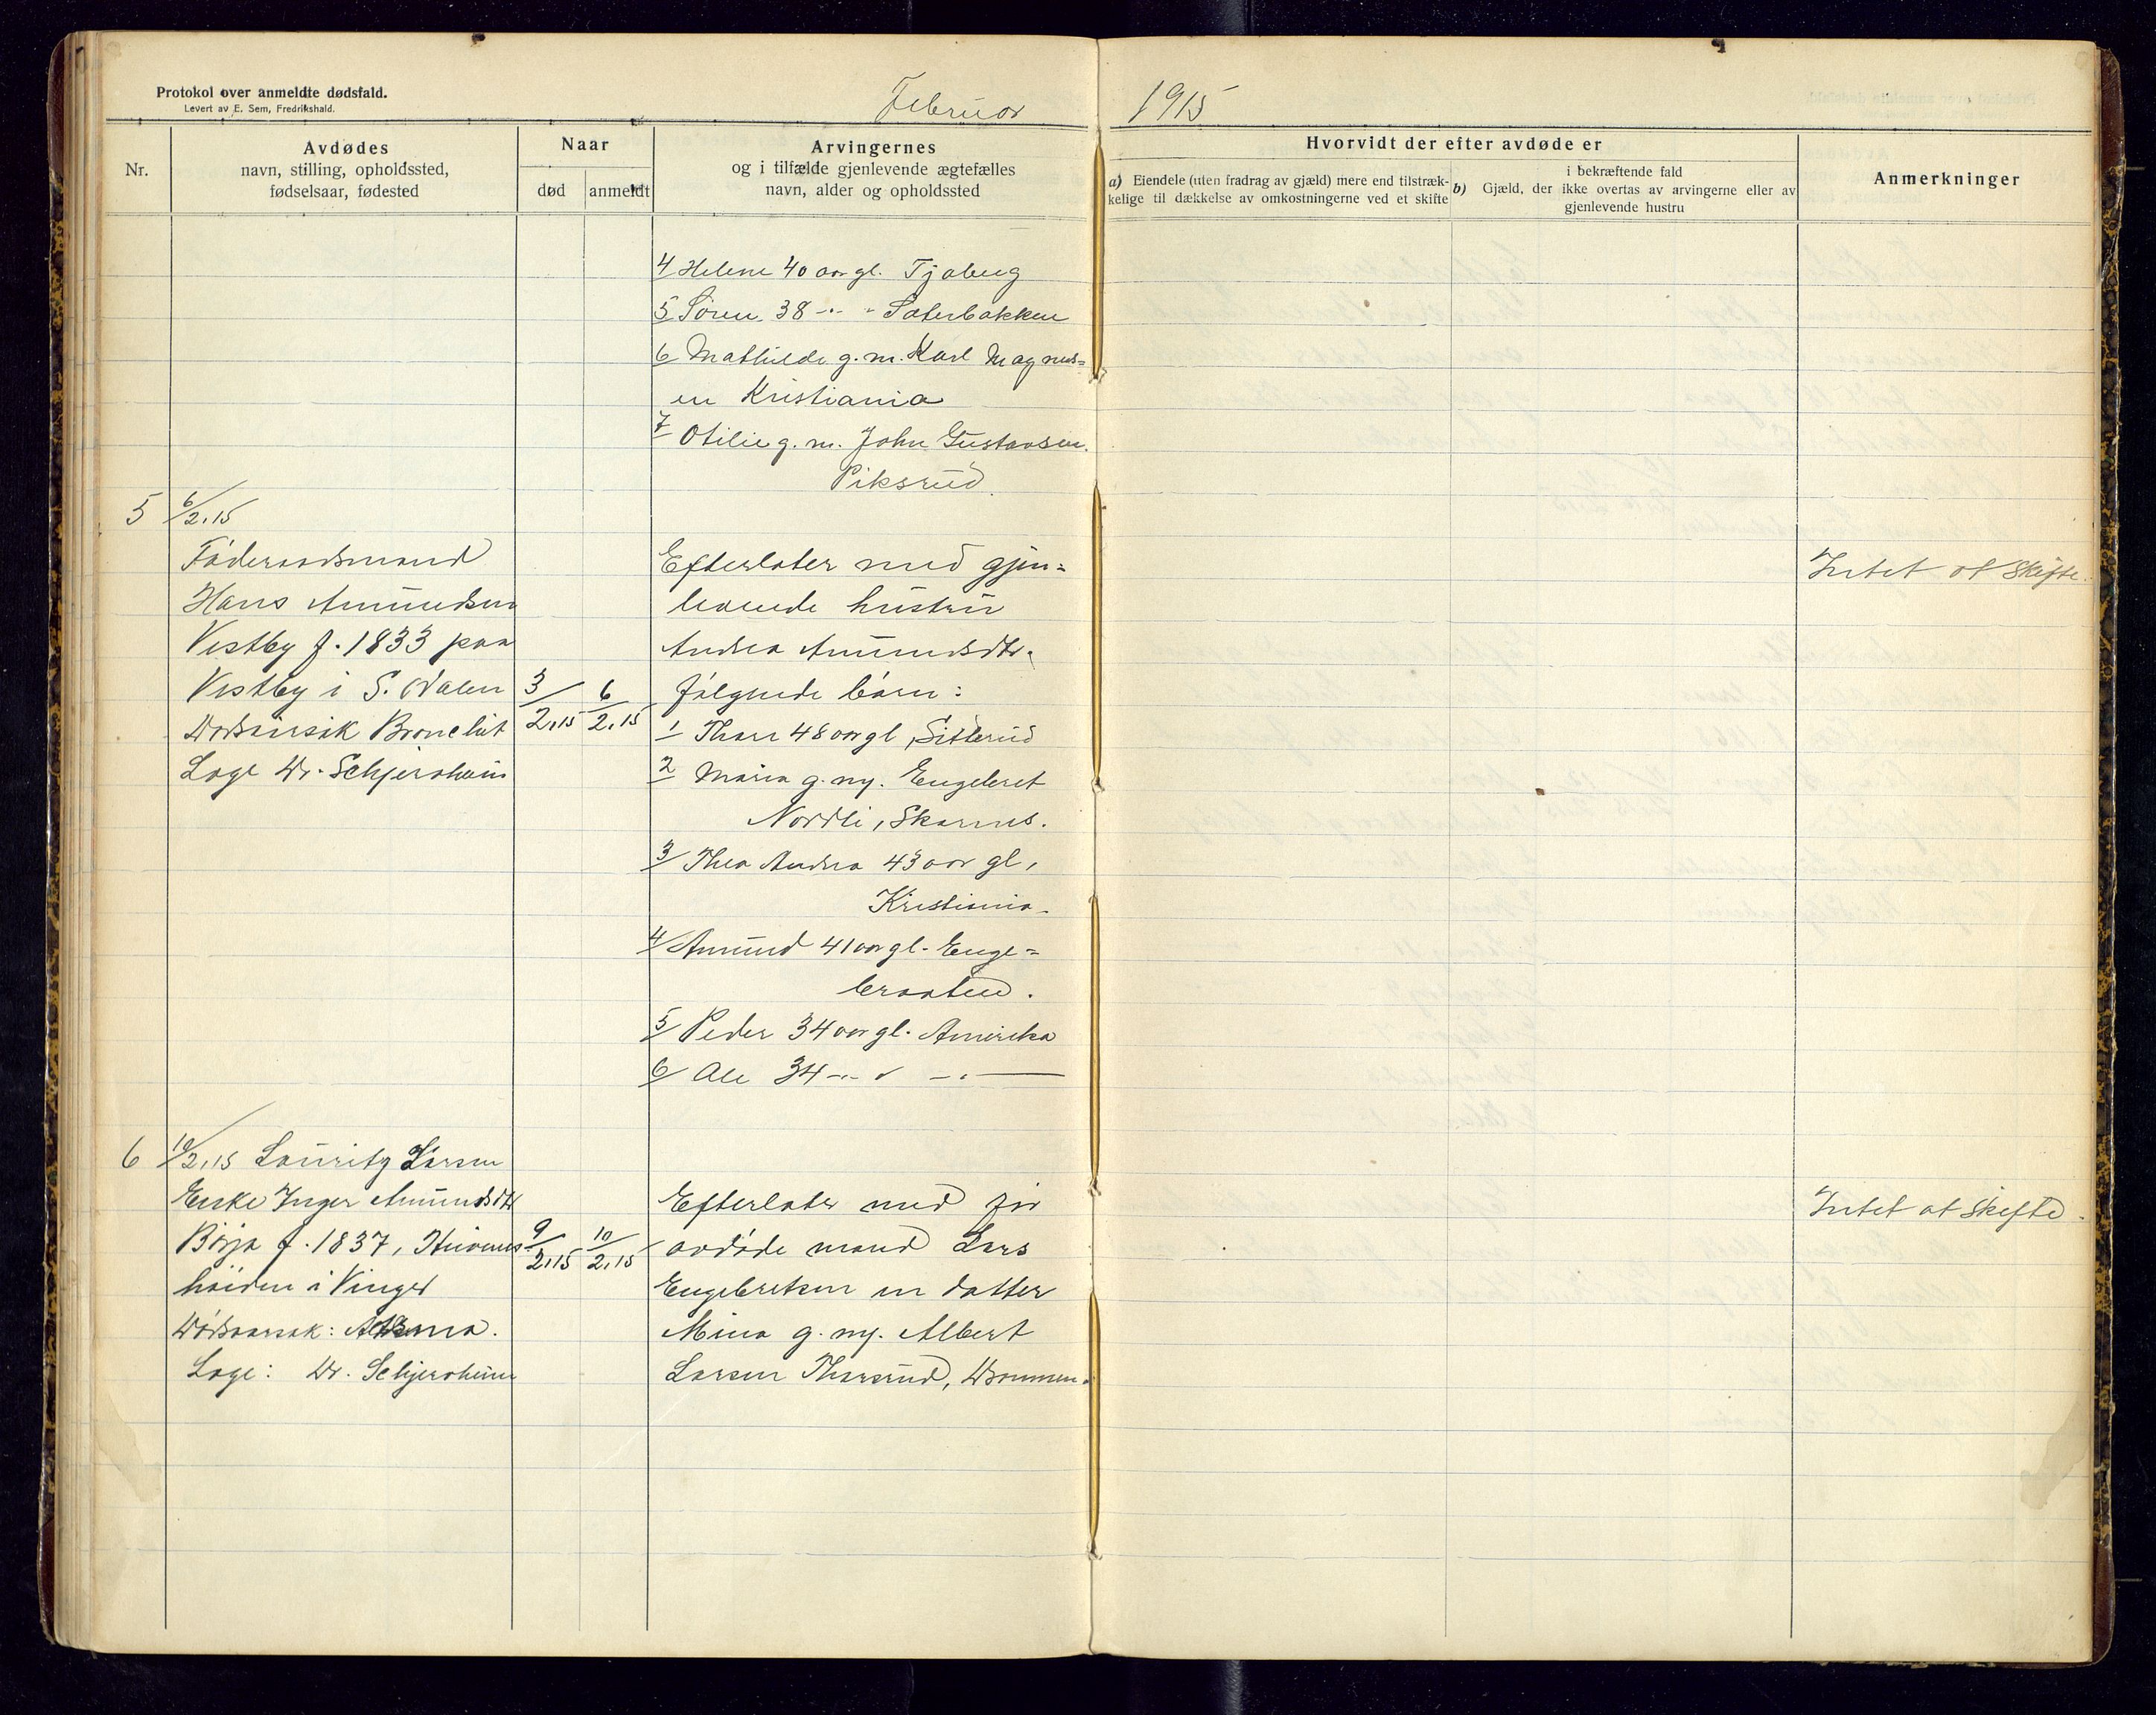 Protokol over anmeldte dødsfald.
Levert av E. Sem, Fredrikshald.
Februar 1915
Nr.
Avdødes
navn, stilling, opholdssted,
fødselsaar, fødested
Naar
død
anmeldt
Arvingernes
og i tilfælde gjenlevende ægtefælles
navn, alder og opholdssted
Hvorvidt der efter avdøde er
a) Eiendele (uten fradrag av gjæld) mere end tilstræk-
kelige til dækkelse av omkostningerne ved et skifte
i bekræftende fald
b) Gjæld, der ikke overtas av arvingerne eller av
gjenlevende hustru
Anmerkninger
4 Helene 40 aar gl. Tjaberg
5 Søren 38 -"- " Sæterbakken
6 Mathilde g.m. Karl Magnus=
en Kristiania
7 Otilie g.m. John Gustavsen
Piksrud.
5 6/2.15
Føderaadsmand
Hans Amundsen
Vestby f. 1833 paa
Vestby i S. Odalen
Dødsaarsak Bronchit
Læge Dr. Schjeroheim
3/2.15
6/2.15
Efterlater med gjen=
levende hustru
Andrea Amundsdtr.
følgende børn:
1 Thor 48 aar gl, Sitterud
2 Maria g. m. Engebret
Nordli, Skarnes.
3 Thea Andrea 43 aar gl,
Kristiania.
4 Amund 41 aar gl. Enge=
braaten.
5 Peder 34 aar gl. Amerika
6 Ole 34 -"- " -"-
Intet at skifte.
6 10/2.15 Lauritz Larsen
Enke Inger Amundsdtr
Børja f. 1837,
høiden i Vinger
Dødsaarsak:
Læge: Dr. Schjeroheim
9/2.15
10/2.15
Efterlater med før
avdøde mand Lars
Engebretsen en datter
Mina g. m. Albert
Larsen Tharsrud,
Intet at skifte.